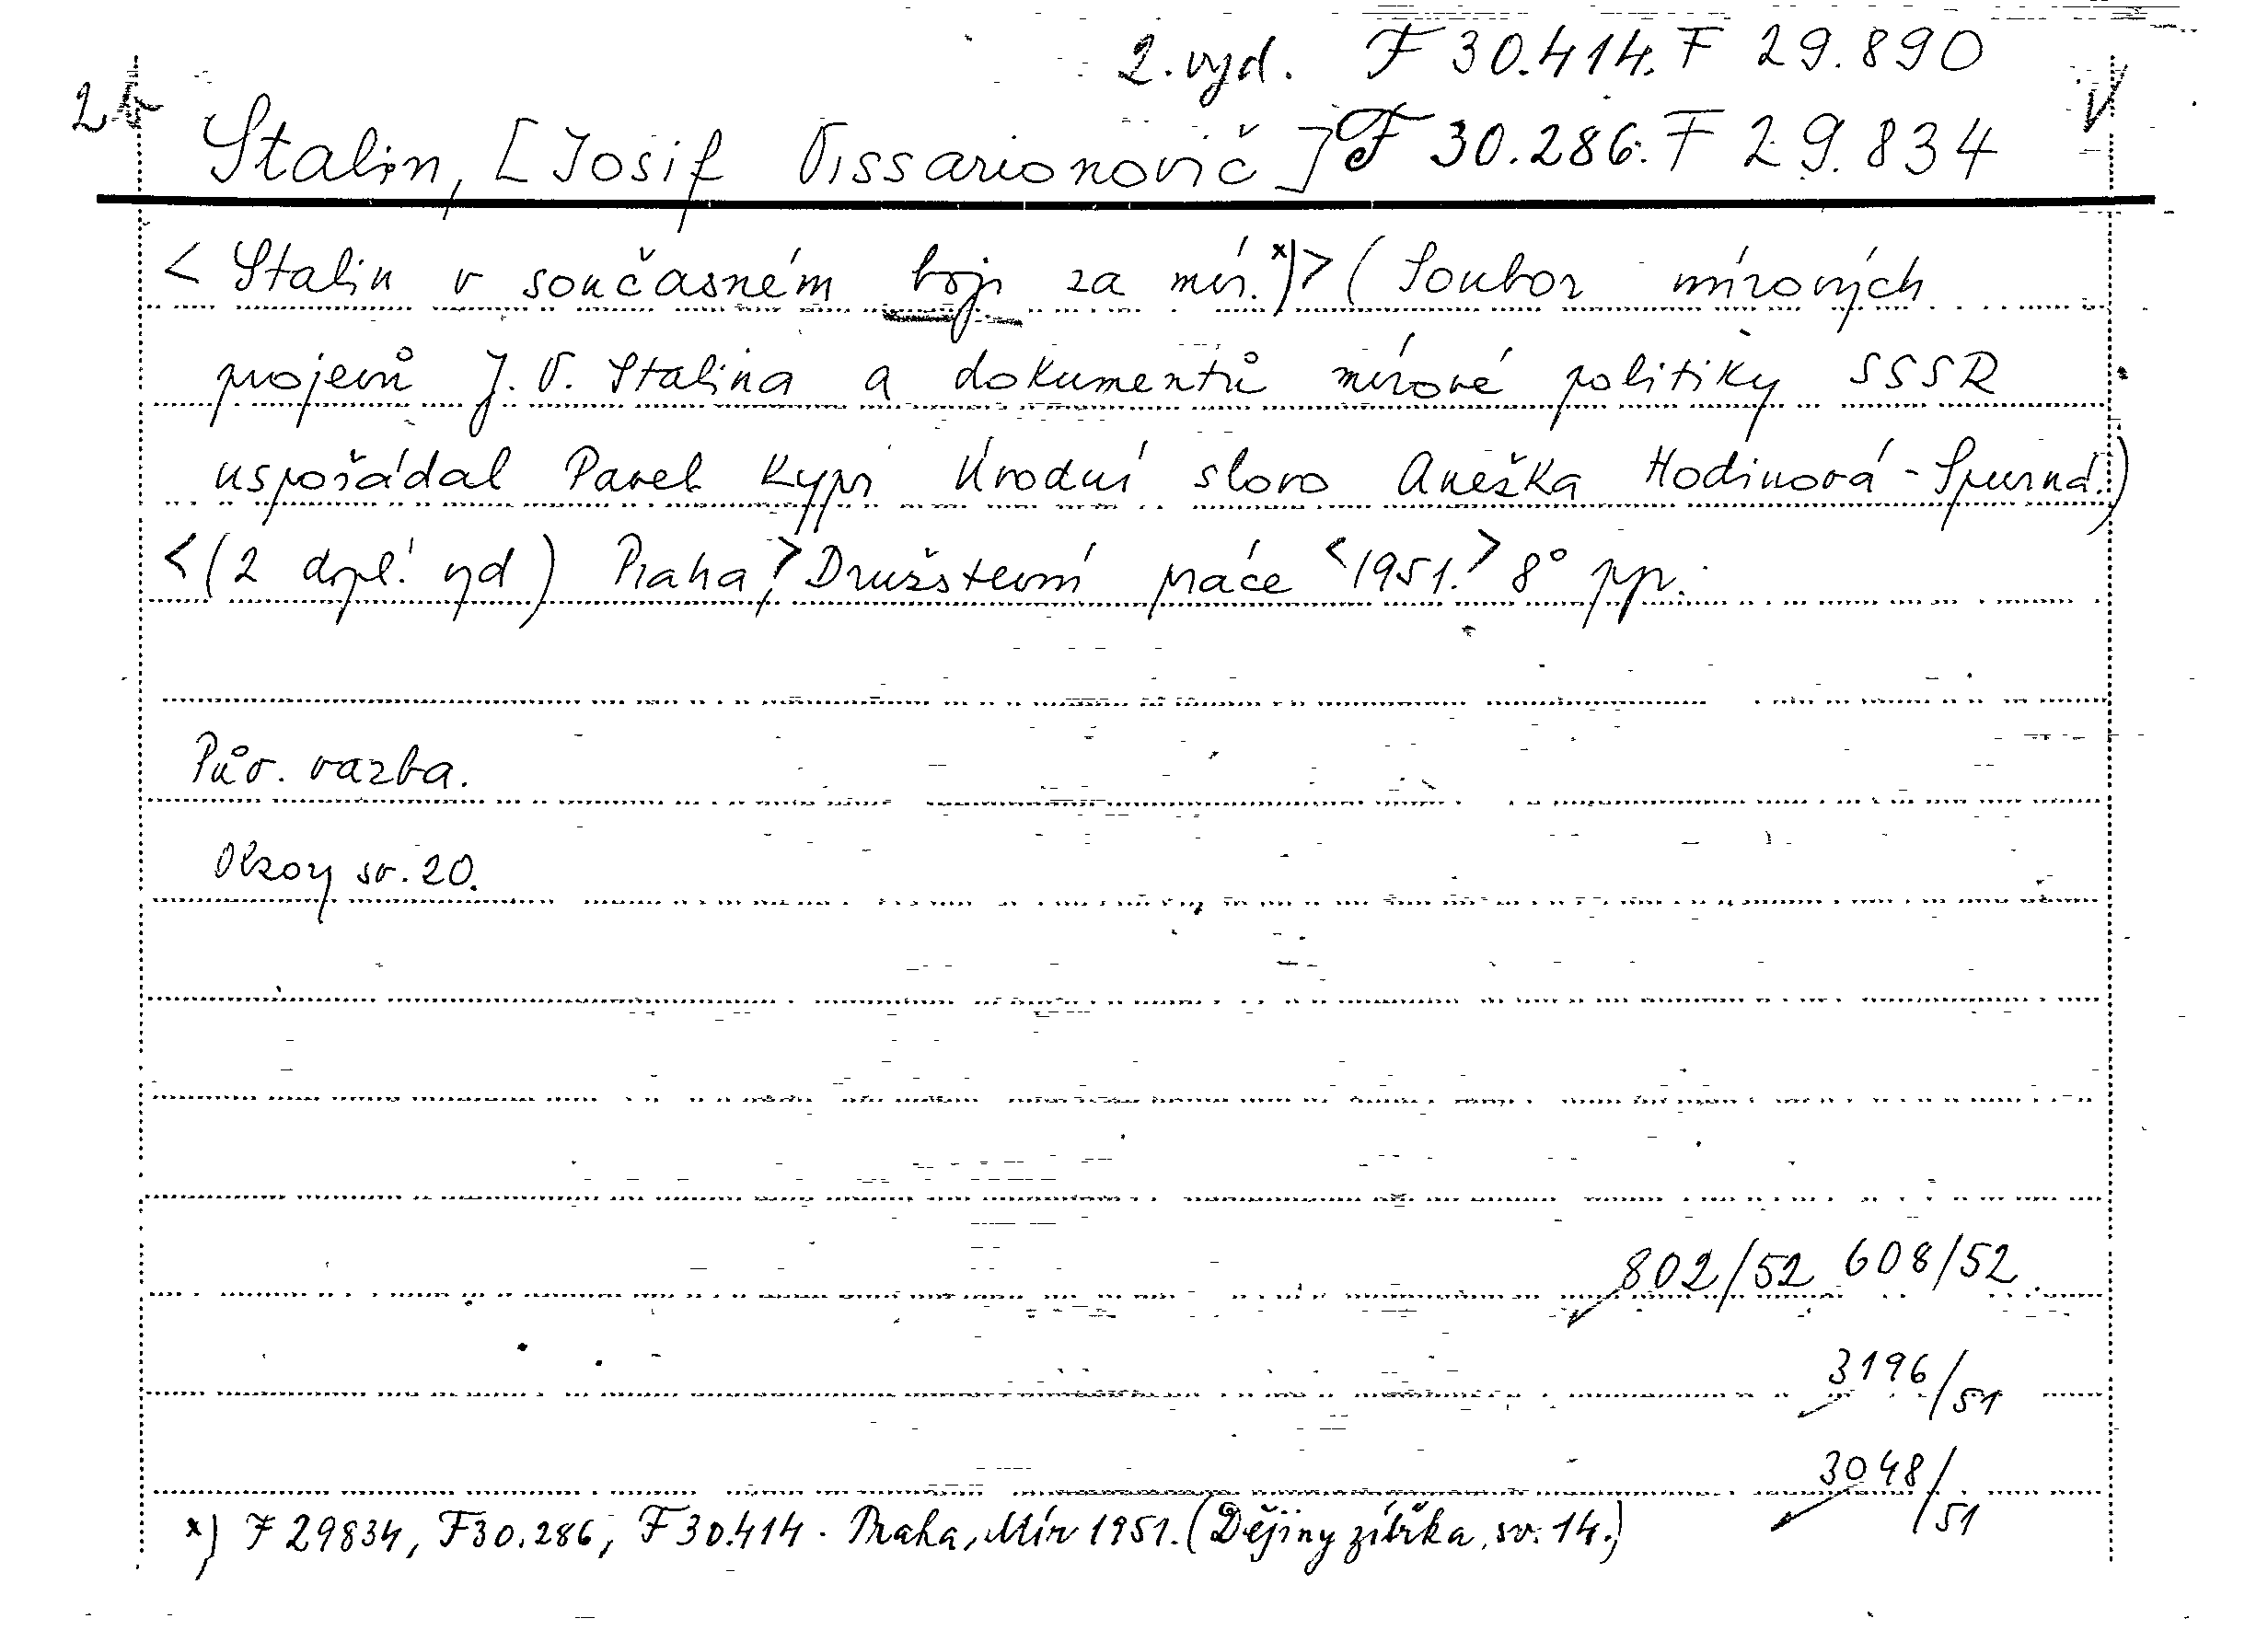 2. vyd. F 30.414. F 29.890
Stalin, [Josif Vissarionovič] F 30.286. F 29.834
< Stalin v současném boji za mír. x)> (Soubor mírových
projevů J. V. Stalina a dokumentů mírové politiky SSSR
uspořádal Pavel Kypr Úvodní slovo Anežka Hodinová-Spurná.)
<(2 dopl. vyd) Praha,> Družstevní práce <1951.> 8° pp.
Pův. vazba.
Obzory sv. 20.
802/52 608/52
3196/51
3048/51
x) F 29834, F 30.286, F 30.414. Praha, Mír 1951. (Dějiny zítřka, sv. 14.)